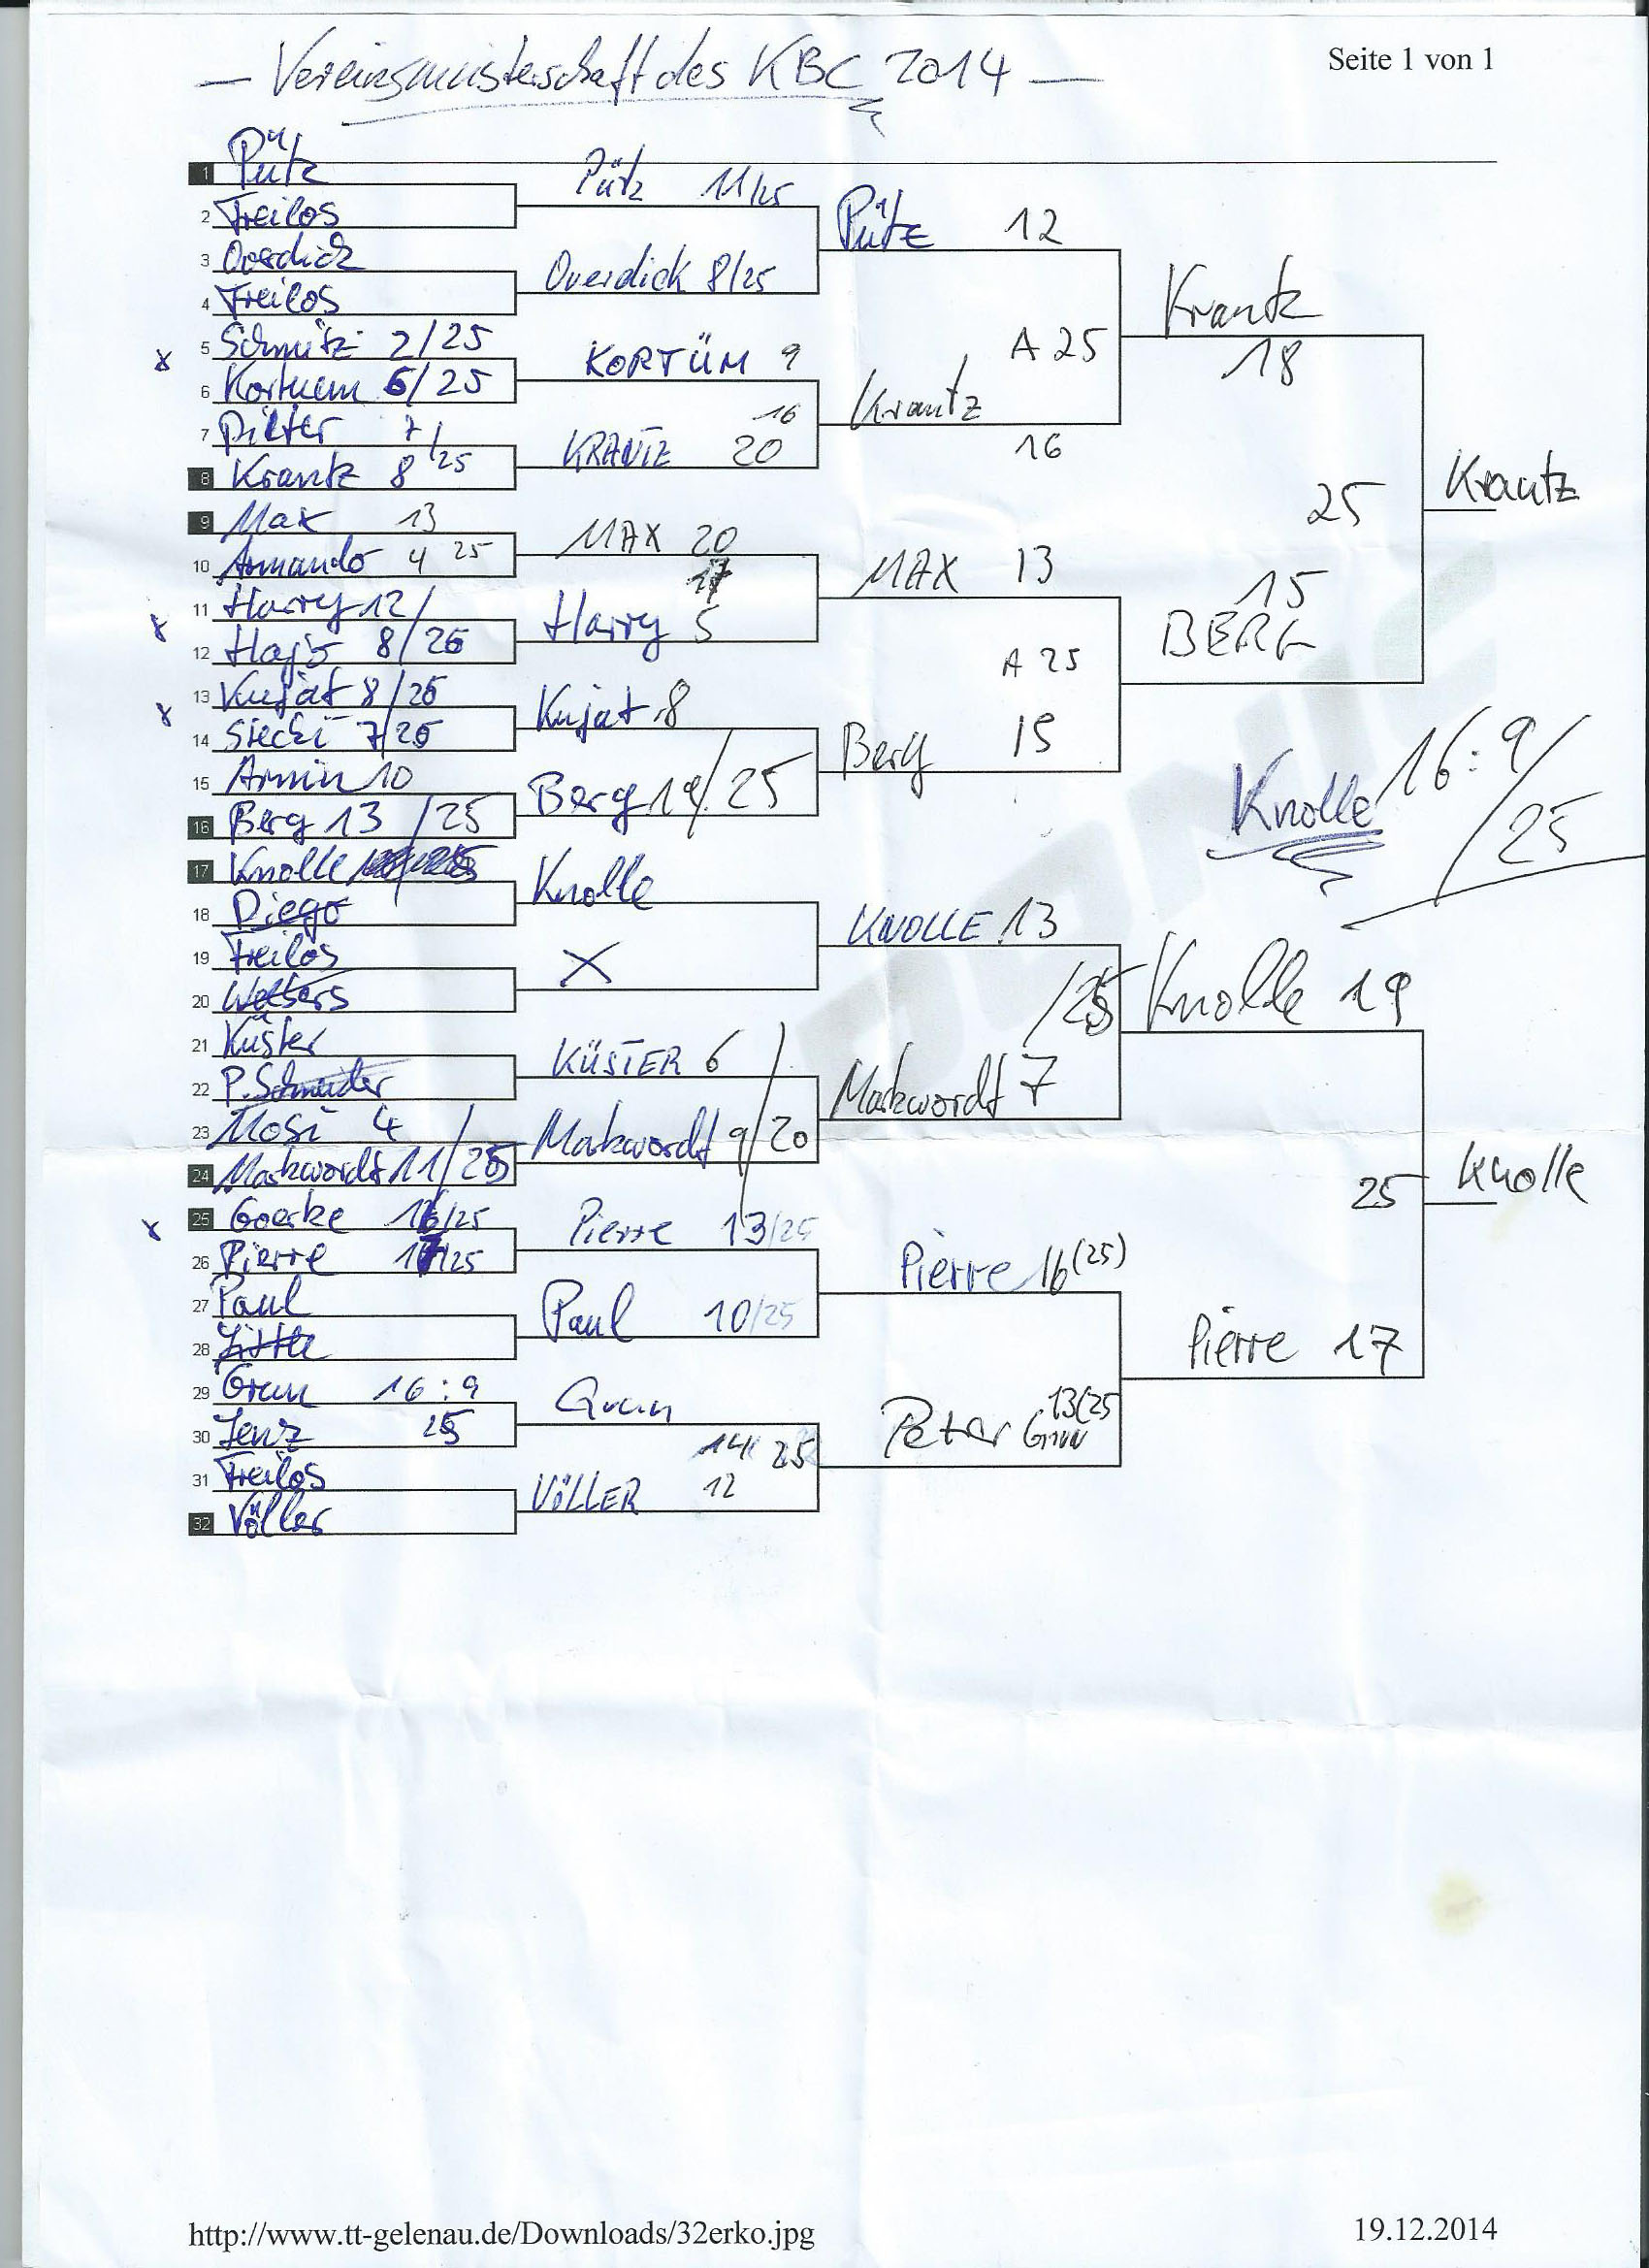 Seite 1 von 1
— Vereinsmeisterschaft des KBC 2014 —
1 Pütz
2 Freilos
3 Overdick
4 Freilos
5 Schmitz 2/25
6 Kortuem 6/25
7 7/
8 Krantz 8 /25
9 Max 13
10 Armando 4 25
11 Harry 12/
12 Hajo 8/25
13 Kujat 8/25
14 Stecki 7/25
15 Armin 10
16 Berg 13 /25
17 Knolle
18 Diego
19 Freilos
20 Wolters
21 Küster
22 P. Schneider
23 Mosi 4
24 Markwordt 11/25
25 Goerke 16/25
26 Pierre 17/25
27 Paul
28
29 Grun 16:9
30 Jenz 25
31 Freilos
32 Völler
Pütz 11/25
Overdick 8/25
KORTÜM 9
16
KRANTZ 20
MAX 20
17
Harry 5
Kujat 8
Berg 19/25
Knolle
X
KÜSTER 6
Markwordt 9/20
Pierre 13/25
Paul 10/25
Grun
14 25
VÖLLER 12
Pütz 12
A 25
Krantz
16
MAX 13
A 25
Berg 15
KNOLLE 13
/25
Markwordt 7
Pierre 16 (25)
13/25
Peter Grun
Krantz
18
25
15
BERG
Knolle 19
25
Pierre 17
Krantz
Knolle 16:9/
25
Knolle
http://www.tt-gelenau.de/Downloads/32erko.jpg
19.12.2014